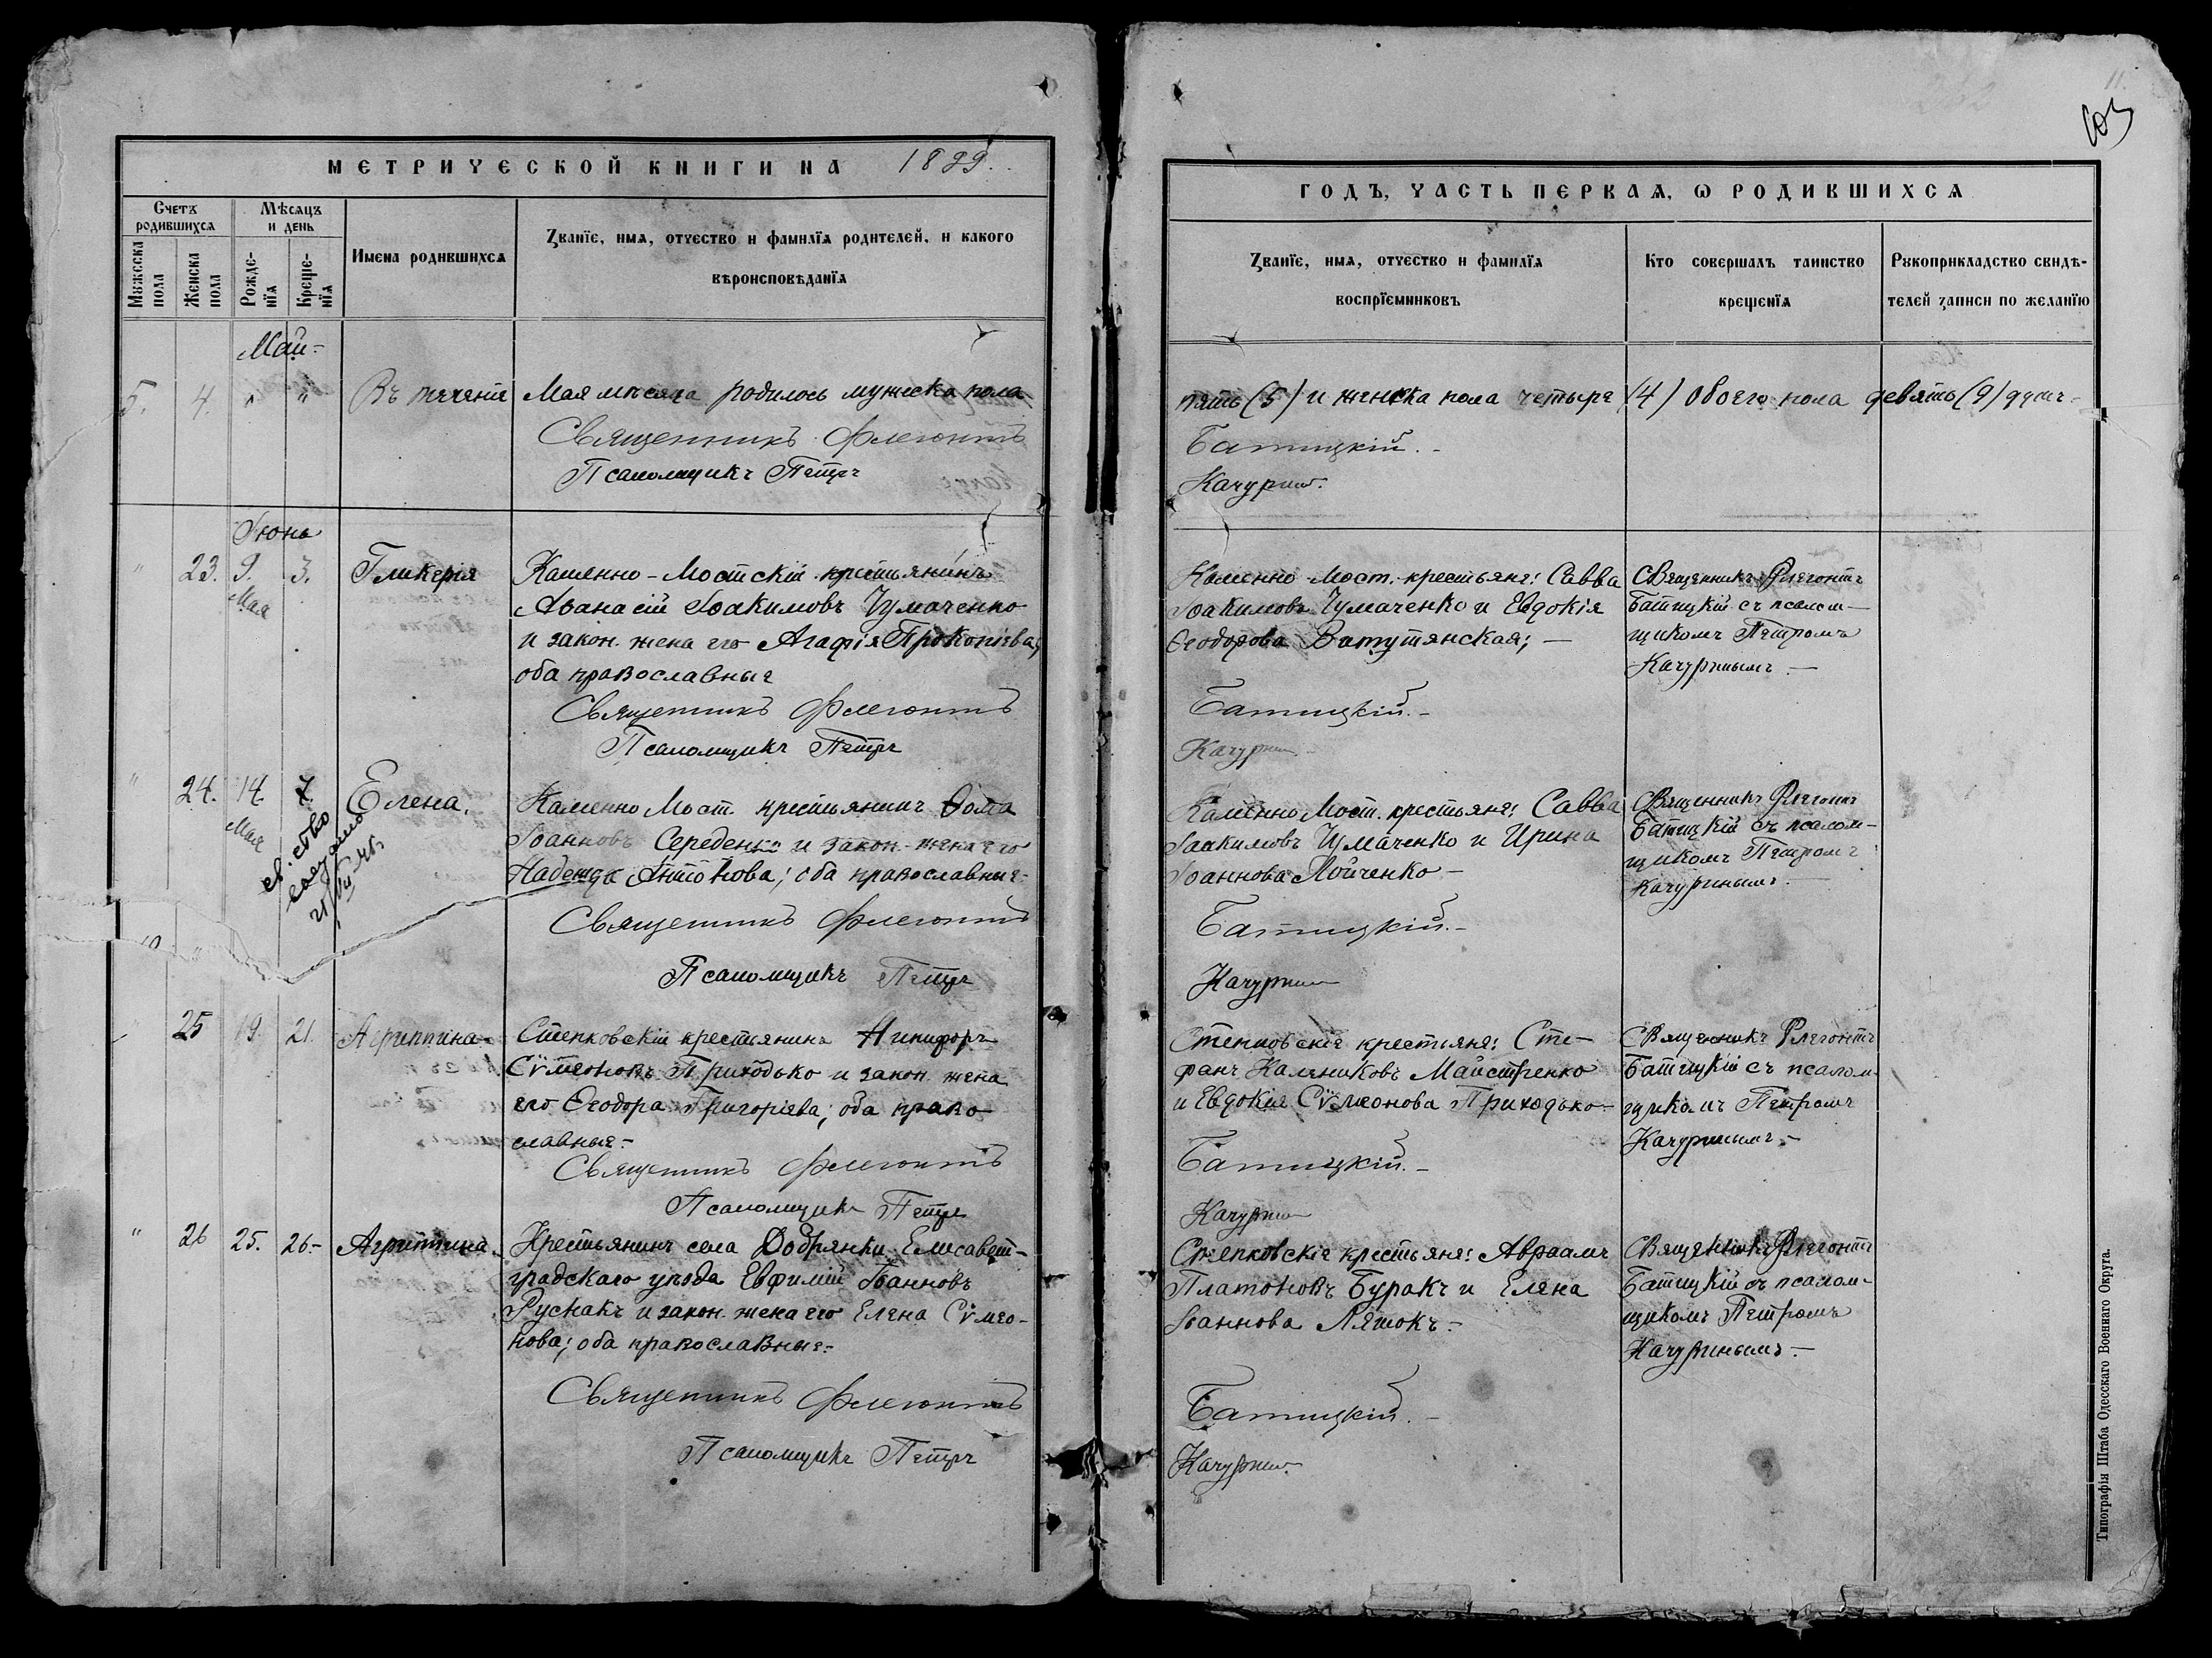 МЕТРИЧЕСКОЙ КНИГИ НА 1899.
Счетъ родившихся
Мѣсяцъ и день
Мужеска пола
Женска пола
Рожденїя
Крещенїя
Имена родившихся
Званїе, имя, отчество и фамилїя родителей, и какого
вѣроисповѣданїя
Май
5. 4. " " Въ теченіе Мая мѣсяца родилось мужеска пола
Священникъ Флегонтъ
Псаломщикъ Петръ
Іюнь
" 23. 9. Мая 3. Гликерія
Каменно-Мостскій крестьянинъ
Аѳанасій Іоакимовъ Чумаченко
и закон. жена его Агафія Прокопіева;
оба православные
Священникъ Флегонтъ
Псаломщикъ Петръ
" 24. 14. Мая 7. Елена.
св.ство
выдано
Каменно Мост. крестьянинъ Ѳома
Іоанновъ Середенко и закон. жена его
Надежда Антонова; оба православные.
Священникъ Флегонтъ
Псаломщикъ Петръ
25 19. 21. Агриппина
Степковскій крестьянинъ Никифоръ
Сѵмеоновъ Приходько и закон. жена
его Ѳеодора Григоріева; оба право-
славные.-
Священникъ Флегонтъ
Псаломщикъ Петръ
" 26 25. 26.- Агриппина.
Крестьянинъ села Добрянки Елисавет-
градскаго уѣзда Евфимій Іоанновъ
Руснакъ и закон. жена его Елена Сѵмео-
нова; оба православные.-
Священникъ Флегонтъ
Псаломщикъ Петръ
103
ГОДЪ, ЧАСТЬ ПЕРВАЯ, Ѡ РОДИВШИХСЯ
Званїе, имя, отчество и фамилїя
воспрїемниковъ
Кто совершалъ таинство
крещенїя
Рукоприкладство свидѣ-
телей записи по желанїю
пять (5) и женска пола четыре (4) обоего пола девять (9) душъ-
Батицкій.-
Качуринъ.
Каменно-Мост. крестьяне: Савва
Іоакимовъ Чумаченко и Евдокія
Ѳеодорова Ватутянская;-
Священникъ Флегонтъ
Батицкій съ псалом-
щикомъ Петромъ
Качуринымъ.-
Батицкій.-
Качуринъ
Каменно Мост. крестьяне: Савва
Іоакимовъ Чумаченко и Ирина
Іоаннова Лойченко-
Священникъ Флегонтъ
Батицкій съ псалом-
щикомъ Петромъ
Качуринымъ.-
Батицкій.-
Качуринъ
Степковскіе крестьяне: Сте-
фанъ Калениковъ Майстренко
и Евдокія Сѵмеонова Приходько-
Священникъ Флегонтъ
Батицкій съ псалом-
щикомъ Петромъ
Качуринымъ.-
Батицкій.-
Качуринъ
Степковскіе крестьяне: Авраамъ
Платоновъ Буракъ и Елена
Іоаннова Ляшокъ.-
Священникъ Флегонтъ
Батицкій съ псалом-
щикомъ Петромъ
Качуринымъ.-
Батицкій.-
Качуринъ.
Типографія Штаба Одесскаго Военнаго Округа.